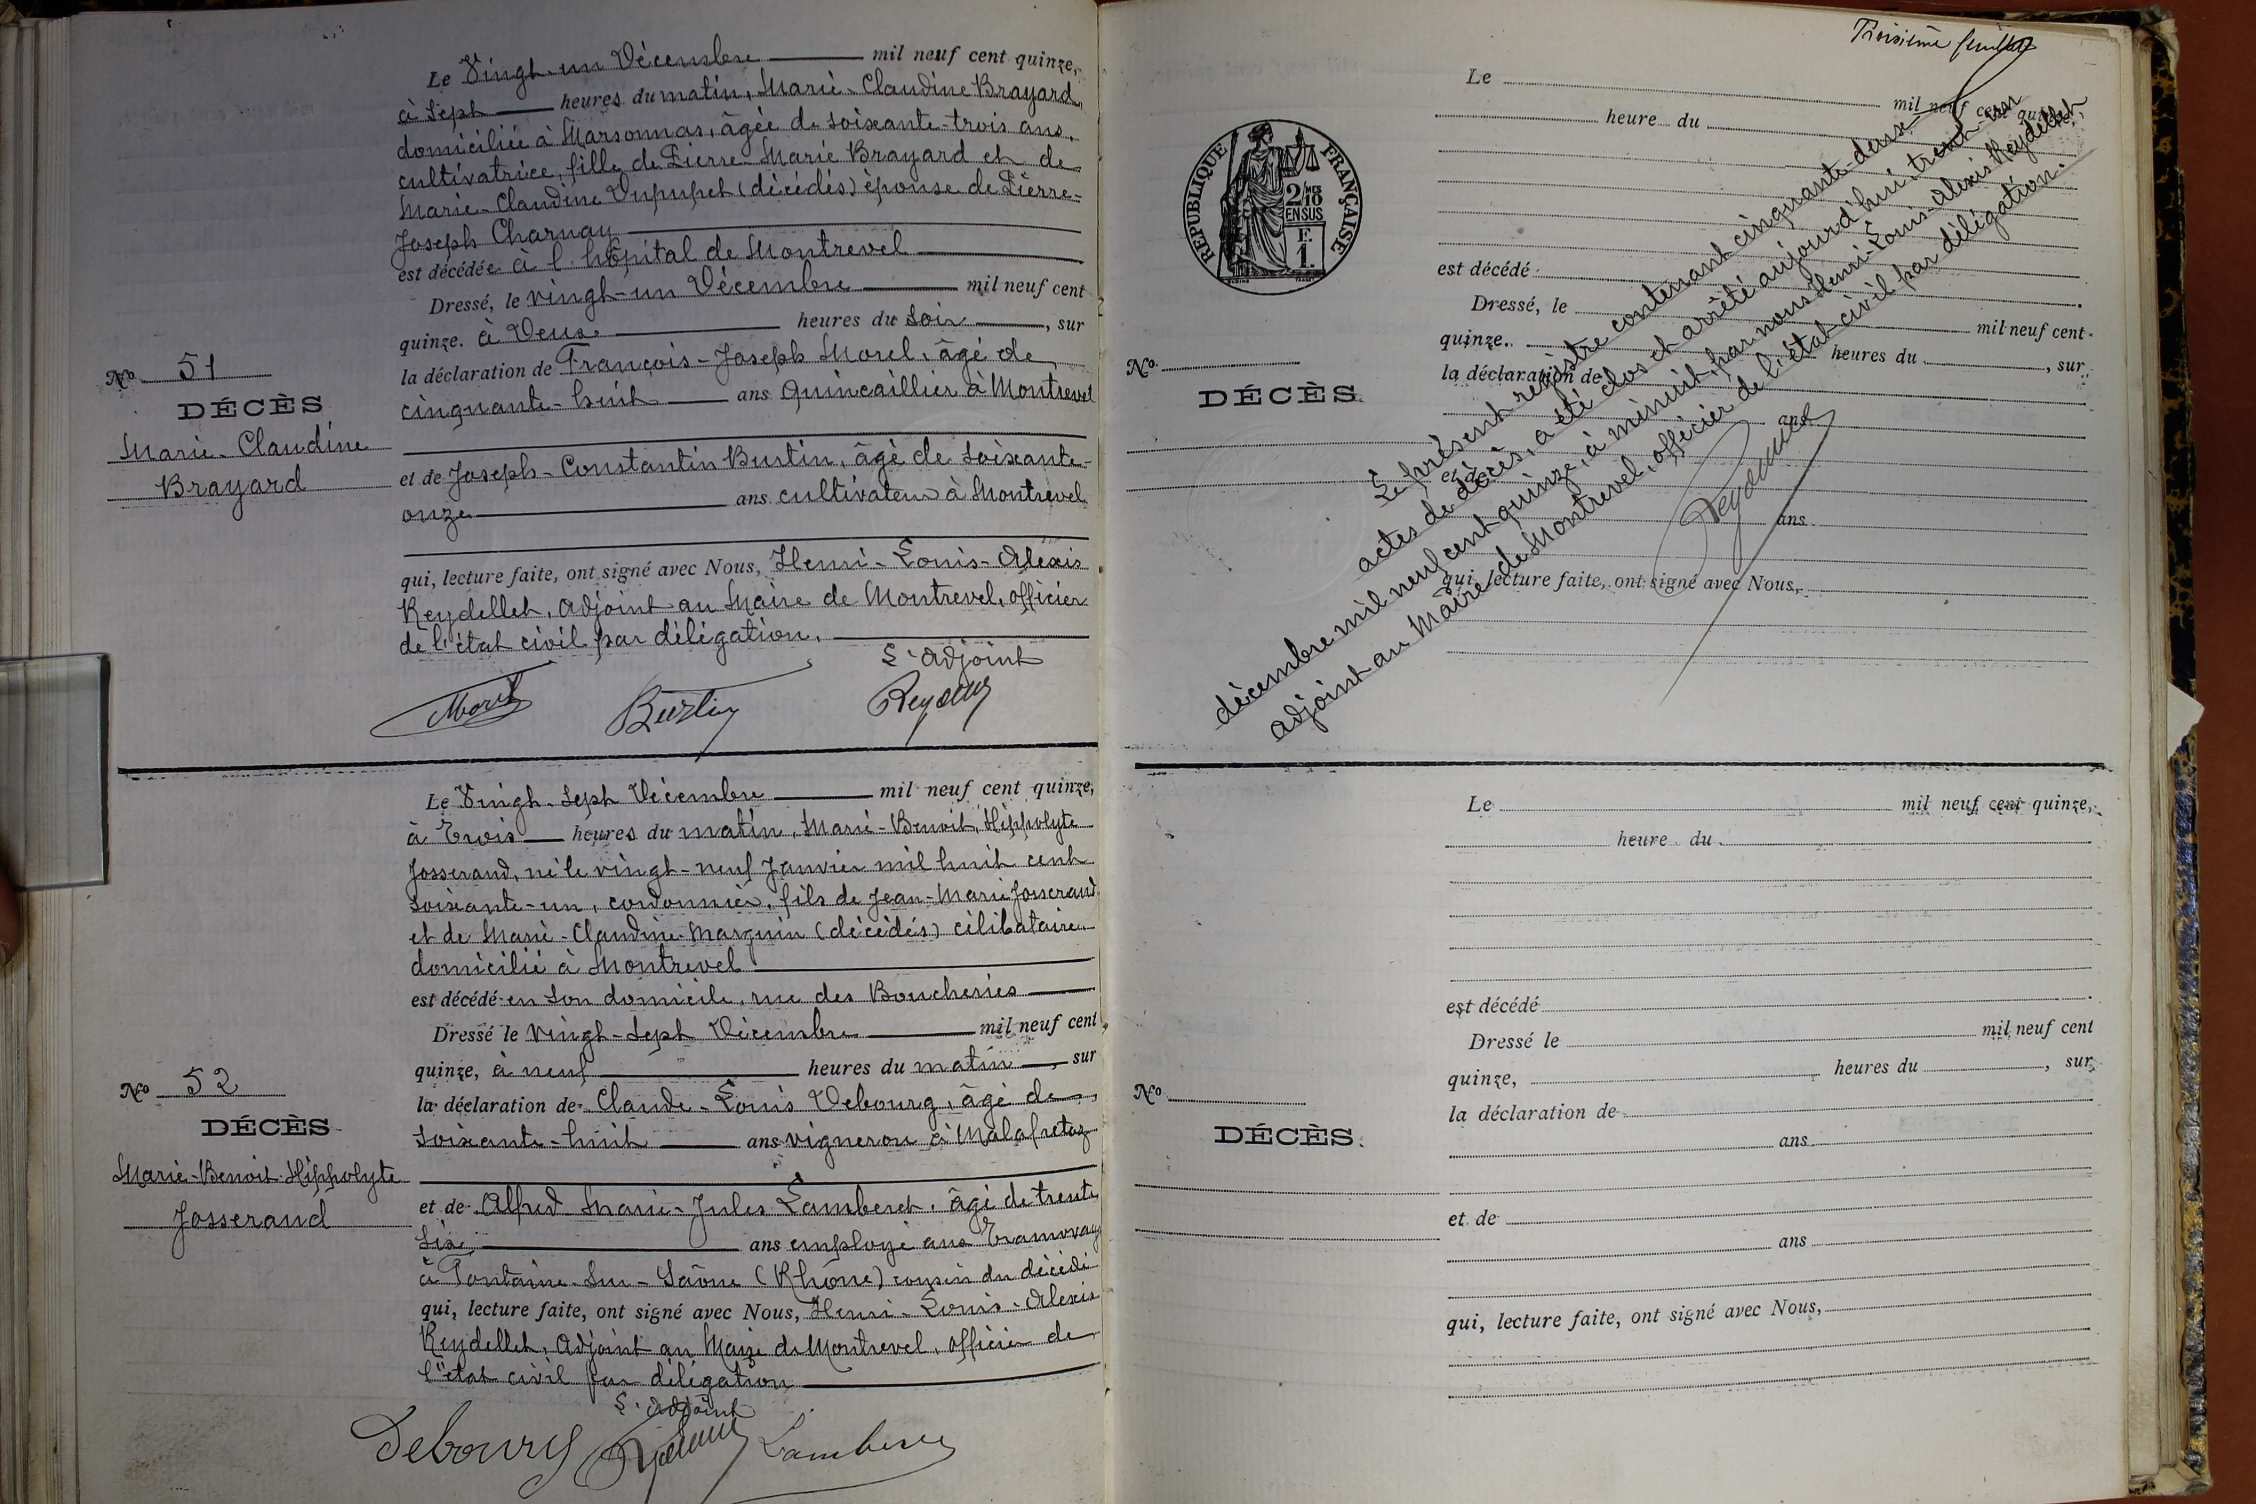 Le Vingt-un Décembre mil neuf cent quinze,
à Sept heures du matin, Marie-Claudine Brayard,
domiciliée à Marsonnas, âgée de soixante-trois ans,
cultivatrice, fille de Pierre-Marie Brayard et de
Marie-Claudine Dupupet (décédés) épouse de Pierre-
Joseph Charnay
est décédée à l'hôpital de Montrevel
Dressé, le vingt-un Décembre mil neuf cent
quinze. à Deux heures du Soir, sur
la déclaration de François-Joseph Morel, âgé de
cinquante-huit ans Quincaillier à Montrevel
et de Joseph-Constantin Burtin, âgé de Soixante-
onze ans cultivateur à Montrevel
qui, lecture faite, ont signé avec Nous, Henri-Louis-Alexis
Reydellet, Adjoint au Maire de Montrevel, officier
de l'état civil par délégation.
L'adjoint
Morel Burtin
No 51
DÉCÈS
Marie-Claudine
Brayard
Le Vingt-Sept Décembre mil neuf cent quinze,
à Trois heures du matin, Marie-Benoit, Hippolyte
Josserand, né le vingt-neuf Janvier mil huit cent
soixante-un, cordonnier, fils de Jean-Marie Josserand
et de Marie-Claudine Marguin (décédés) célibataire
domicilié à Montrevel
est décédé en son domicile, rue des Boucheries
Dressé le vingt-Sept Décembre mil neuf cent
quinze, à neuf heures du matin, sur
la déclaration de Claude-Louis Debourg, âgé de
soixante-huit ans vigneron à Malafretaz
et de Alfred Marie-Jules Lamberet, âgé de trente
six ans employé aux Tramways
à Fontaine-Sur-Saône (Rhône) cousin du décédé
qui, lecture faite, ont signé avec Nous, Henri-Louis-Alexis
Reydellet, Adjoint au Maire de Montrevel, officier de
l'état civil par délégation
L'adjoint
Debourg Lamberet
No 52
DÉCÈS
Marie-Benoit-Hippolyte
Josserand
Troisième feuillet
RÉPUBLIQUE FRANÇAISE
2/10 MES
EN SUS
F.
1.
Le mil neuf cent quinze,
heure du
est décédé
Dressé, le mil neuf cent
quinze. heures du , sur
la déclaration de
ans
et de
ans
qui, lecture faite, ont signé avec Nous,
No
DÉCÈS
Le présent registre contenant cinquante-deux
actes de décès, a été clos et arrêté aujourd'hui trente-un
décembre mil neuf cent quinze, à minuit, par nous Henri-Louis-Alexis Reydellet,
adjoint au Maire de Montrevel, officier de l'état civil par délégation.
Le mil neuf cent quinze,
heure du
est décédé
Dressé le mil neuf cent
quinze, heures du , sur
la déclaration de
ans
et de
ans
qui, lecture faite, ont signé avec Nous,
No
DÉCÈS